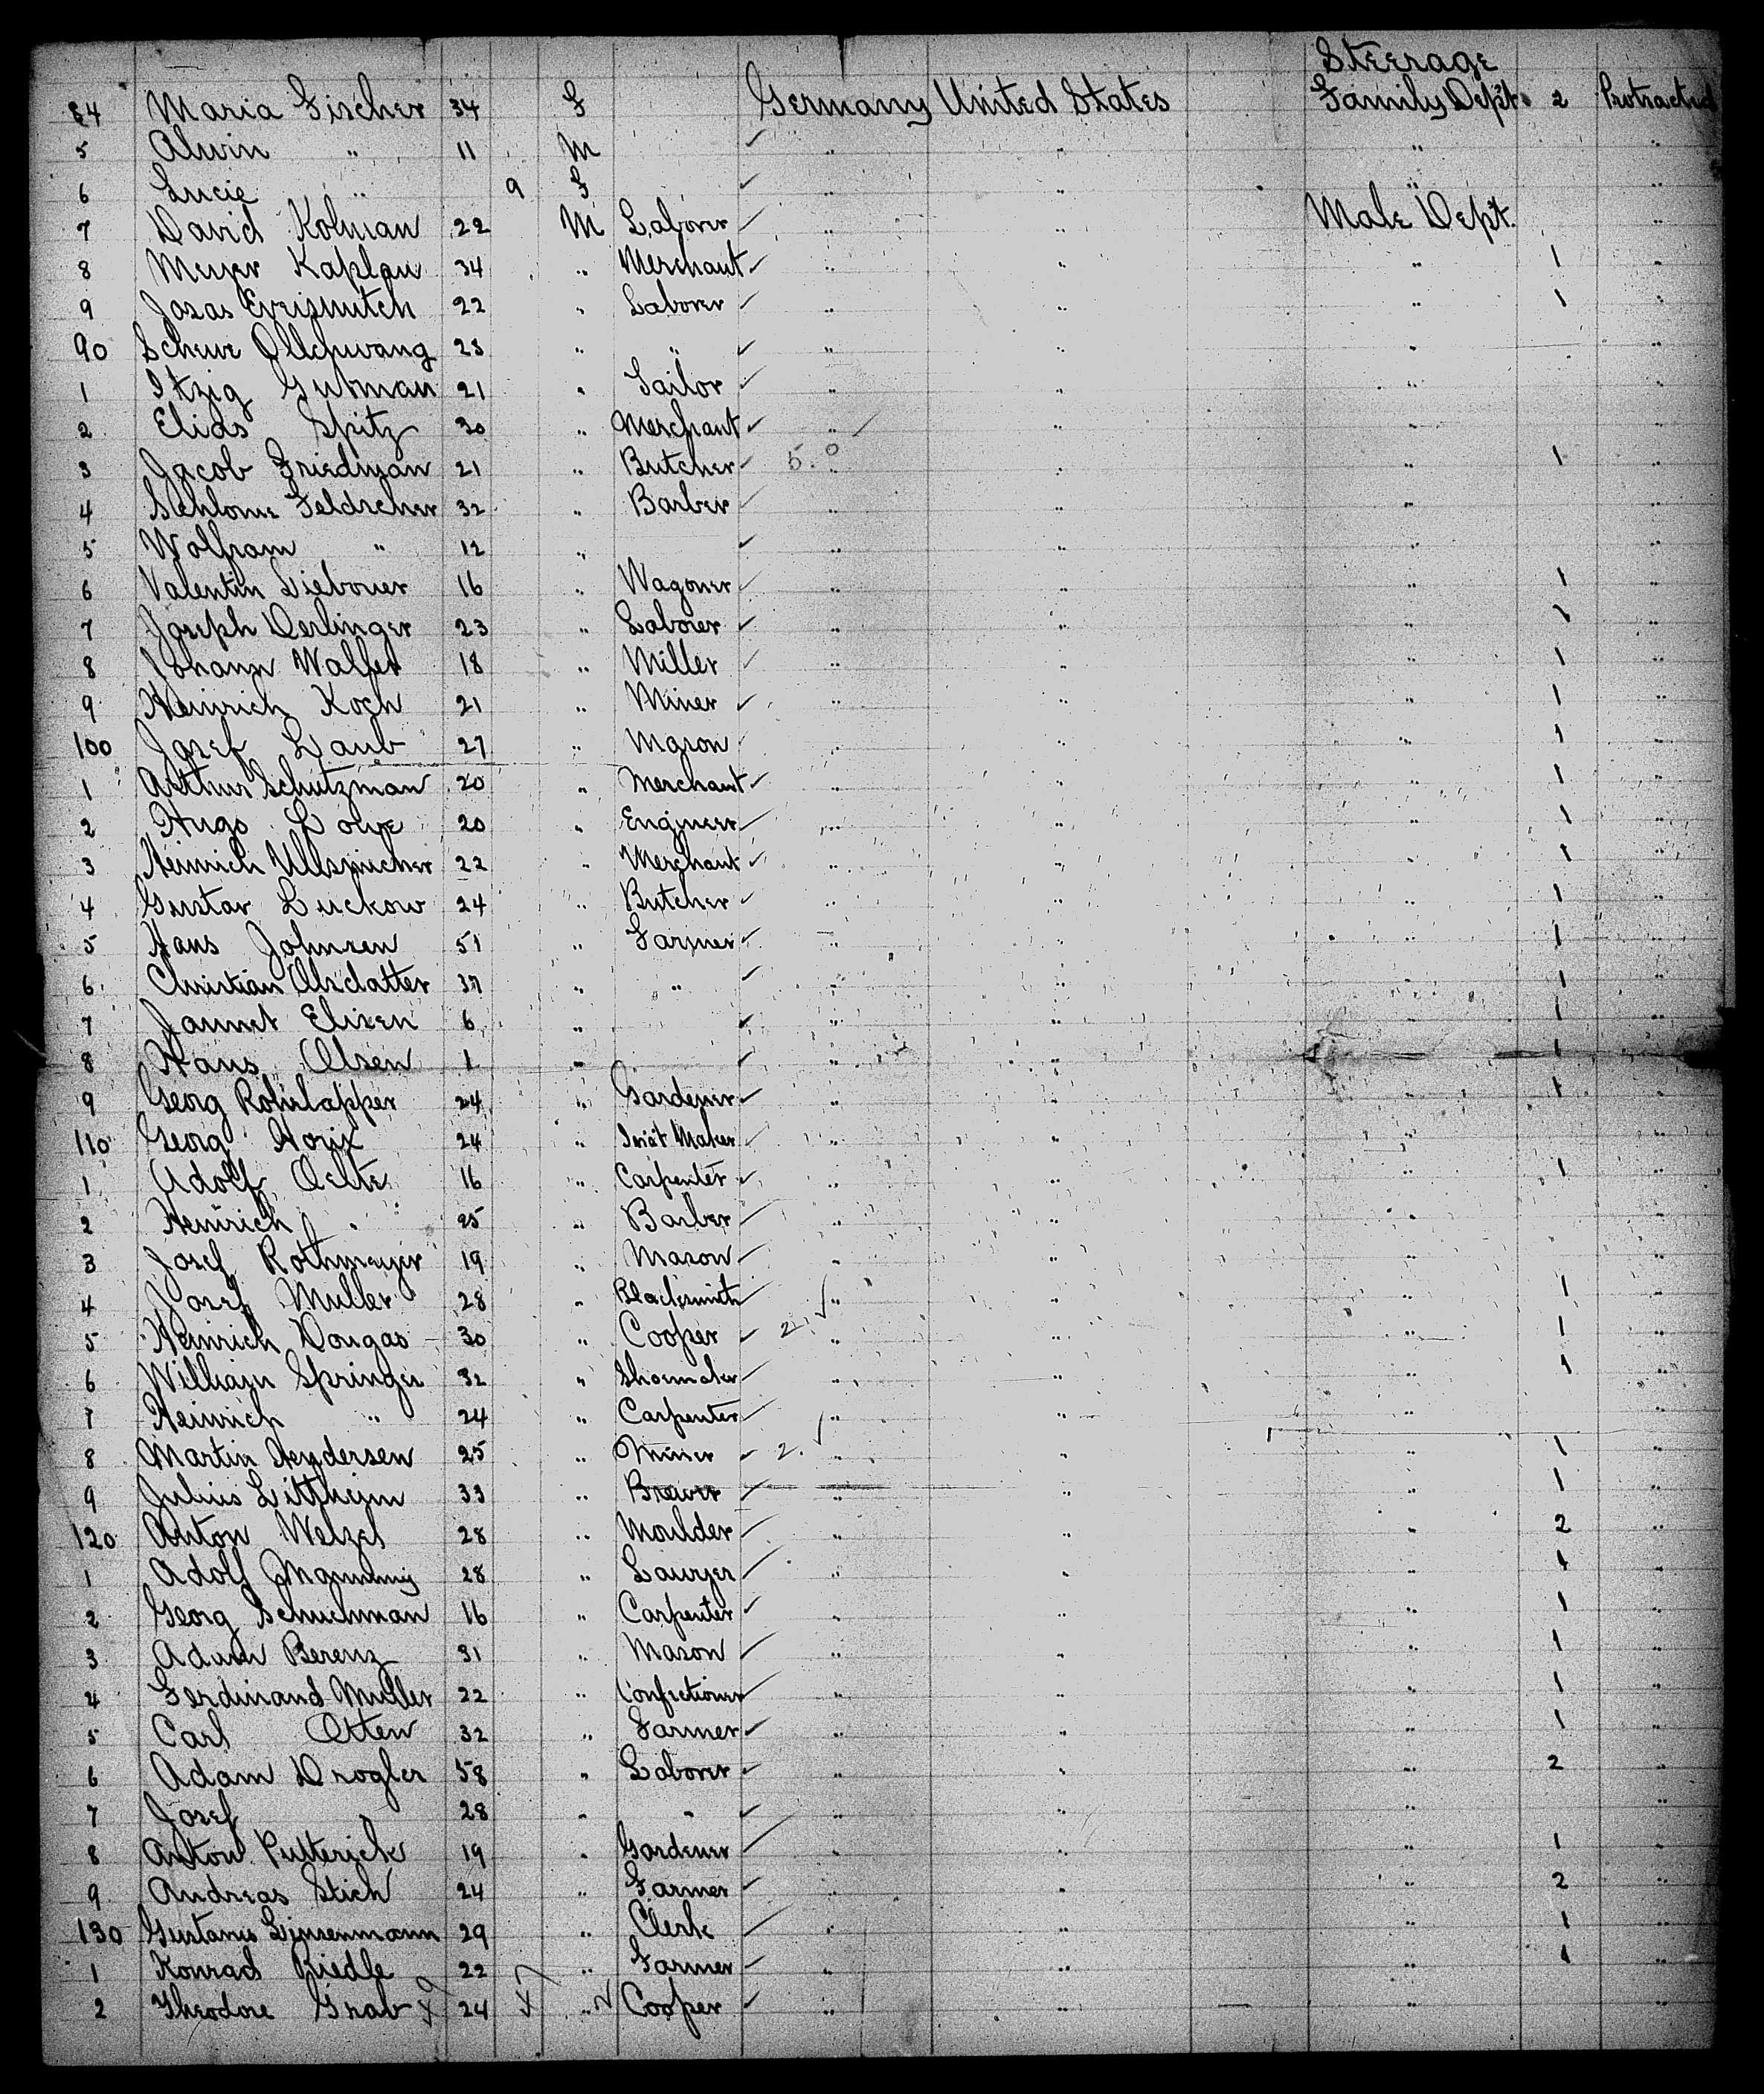 Steerage
84 Maria Fischer 34 F Germany United States Family Dept. 2 Protracted
5 Alwin " 11 M " " " "
6 Lucie " 9 F " " " "
7 David Kolman 22 M Laborer " " Male Dept. "
8 Meyer Kaplan 34 " Merchant " " " 1 "
9 22 " Laborer " " " 1 "
90 23 " " " " " "
1 Itzig Gutman 21 " Tailor " " " "
2 Elias Spitz 30 " Merchant " " " "
3 Jacob Friedman 21 " Butcher 5.0 " " " 1 "
4 Schlome Feldscher 32 " Barber " " " "
5 Wolfram " 12 " " " " "
6 Valentin Liebouer 16 " Wagoner " " " 1 "
7 Joseph Derlinger 23 " Laborer " " " 1 "
8 Johann Walter 18 " Miller " " " 1 "
9 Heinrich Koch 21 " Miner " " " 1 "
100 Josef Daub 27 " Mason " " " 1 "
1 Arthur Schutzman 20 " Merchant " " " 1 "
2 Hugo 20 " Engineer " " " 1 "
3 Heinrich 22 " Merchant " " " 1 "
4 Gustav Luckow 24 " Butcher " " " 1 "
5 Hans Johnsen 51 " Farmer " " " 1 "
6 Christian Olsdatter 37 " " " " " 1 "
7 Jannet Elisen 6 " " " " 1 "
8 Hans Olsen 1 " " " " 1 "
9 Georg 24 " Gardener " " " 1 "
110 Georg Horix 24 " Maker " " " "
1 Adolf Oelte 16 " Carpenter " " " 1 "
2 Heinrich " 25 " Barber " " " "
3 Josef Rothmeyer 19 " Mason " " " "
4 Josef Muller 28 " Blacksmith " " " 1 "
5 Heinrich Dongas 30 " Cooper 2. " " " 1 "
6 William Springer 32 " Shoemaker " " " 1 "
7 Heinrich " 24 " Carpenter " " " "
8 Martin Hendersen 25 " Miner 2. " " " 1 "
9 Julius 33 " Brewer " " " 1 "
120 Anton Welzel 28 " Moulder " " " 2 "
1 Adolf 28 " Lawyer " " " 1 "
2 Georg Schuchman 16 " Carpenter " " " 1 "
3 Adam Berenz 31 " Mason " " " 1 "
4 Ferdinand Muller 22 " Confectioner " " " 1 "
5 Carl Otten 32 " Farmer " " " 1 "
6 Adam Drogler 58 " Laborer " " " 2 "
7 Josef 28 " " " " " "
8 Anton Putterick 19 " Gardener " " " 1 "
9 Andreas Stich 24 " Farmer " " " 2 "
130 Gustavus Linsenmann 29 " Clerk " " " 1 "
1 Konrad Riedle 22 " Farmer " " " 1 "
2 Theodore Grab 24 " Cooper " " "